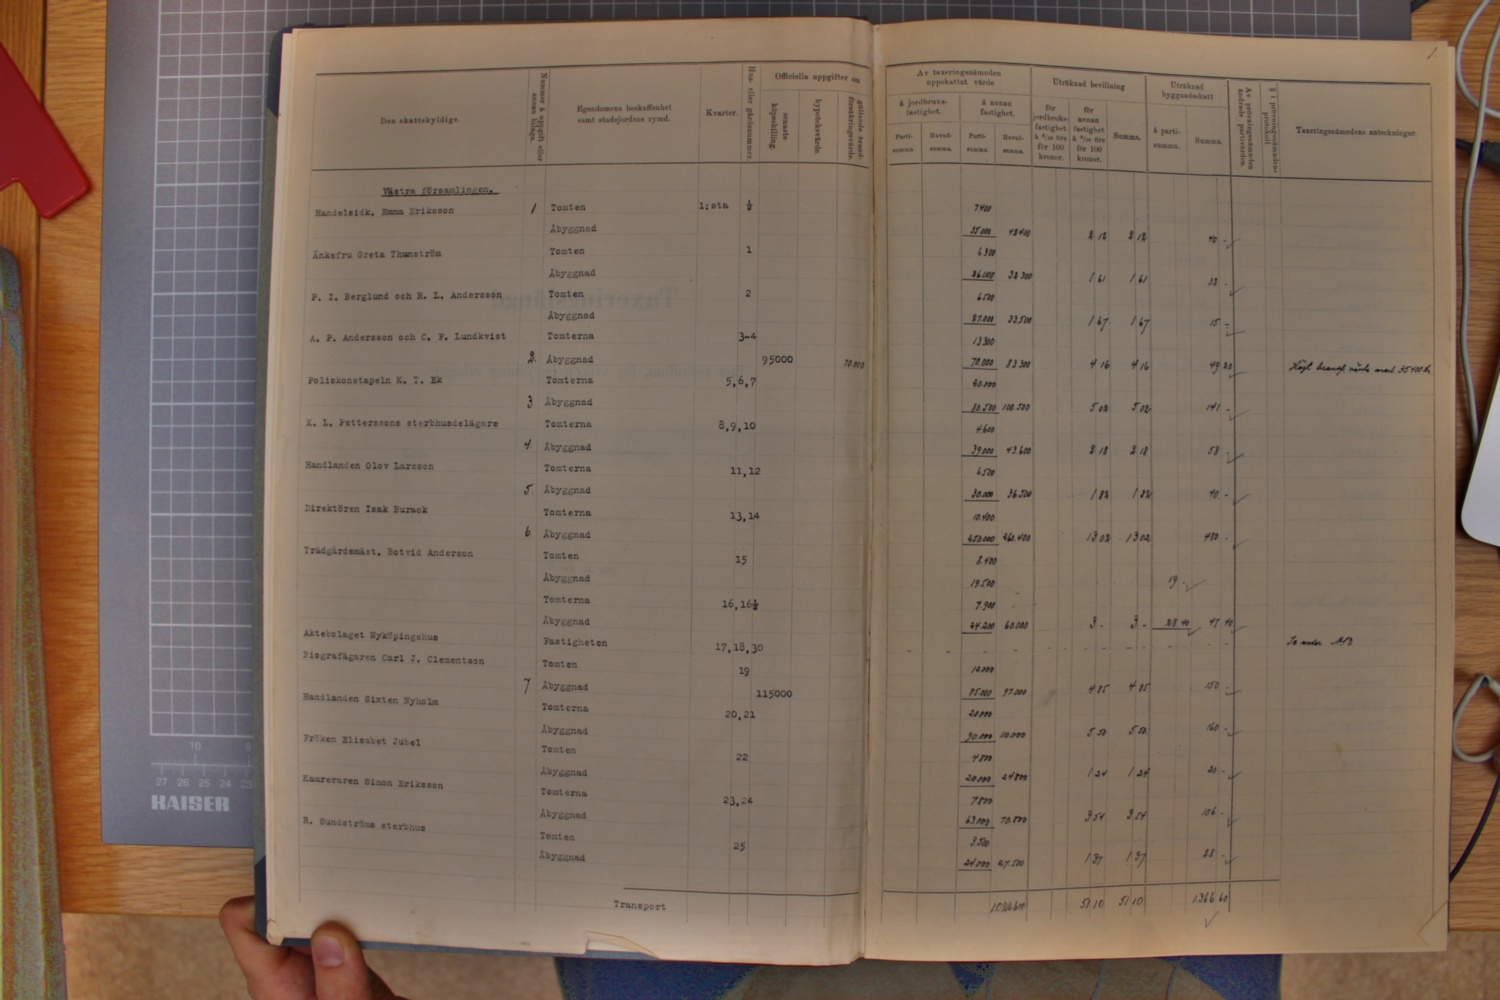 1.
Den skattskyldige.
Nummer å uppgift eller annan bilaga.
Egendomens beskaffenhet samt stadsjordens rymd.
Kvarter.
Hus- eller gårdsnummer.
Officiella uppgifter om
senaste köpeskilling.
hypoteksvärde.
gällande brandförsäkringsvärde.
Av taxeringsnämnden uppskattat värde
å jordbruksfastighet.
å annan fastighet.
Parti-summa.
Huvudsumma.
Parti-summa.
Huvudsumma.
Uträknad bevillning
för jordbruksfastighet
för 100 kroner.
för annan fastighet
för 100 kroner.
Summa.
Uträknad byggnadsskatt
å partisumma.
Summa.
Av prövningsnämnden ändrade partivärden.
§ i prövningsnämndens protokoll
Taxeringsnämndens anteckningar.
Västra församlingen.
Handelsidk. Emma Eriksson 1 Tomten 1;sta ½ 7400
Åbyggnad 35000 42400 2 12 2 12 40 -
Änkefru Greta Thunström Tomten 1 6300
Åbyggnad 26000 32300 1 61 1 61 32 -
P. I. Berglund och R. L. Andersson Tomten 2 6500
Åbyggnad 27000 33500 1 67 1 67 15 -
A. P. Andersson och C. F. Lundkvist Tomterna 3-4 13300
2 Åbyggnad 95000 70000 70.000 83300 4 16 4 16 49 20
Poliskonstapeln K. T. Ek Tomterna 5,6,7 20.000
3 Åbyggnad 80.500 100.500 5 02 5 02 141 -
K. L. Petterssons sterbhusdelägare Tomterna 8,9,10 4.600
4 Åbyggnad 39000 43.600 2 18 2 18 58 -
Handlanden Olov Larsson Tomterna 11,12 6500
5 Åbyggnad 30.000 36.500 1 82 1 82 40 -
Direktören Isak Burack Tomterna 13,14 10.400
6 Åbyggnad 250.000 260.400 13 02 13 02 480 -
Trädgårdsmäst. Botvid Anderson Tomten 15 8.400
Åbyggnad 19.500 19 -
Tomterna 16,16½ 7.900
Åbyggnad 24.200 60.000 3 - 3 - 28 40 47 40
Aktebolaget Nyköpingshus Fastigheten 17,18,30 - - - - - - - - - -
Biografägaren Carl J. Clementson Tomten 19 12.000
7 Åbyggnad 115000 85000 97.000 4 85 4 85 150 -
Handlanden Sixten Nyholm Tomterna 20,21 20.000
Åbyggnad 90.000 110.000 5 50 5 50 160 -
Fröken Elisabet Jubel Tomten 22 4800
Åbyggnad 20000 24800 1 24 1 24 20 -
Kamreraren Simon Eriksson Tomterna 23,24 7800
Åbyggnad 63000 70.800 3 54 3 54 106 -
R. Sundströms sterbhus Tomten 25 3.500
Åbyggnad 24000 27.500 1 37 1 37 28 -
Transport 51 10 51 10 1366 60
10 8
27 26 25 24 23
KAISER